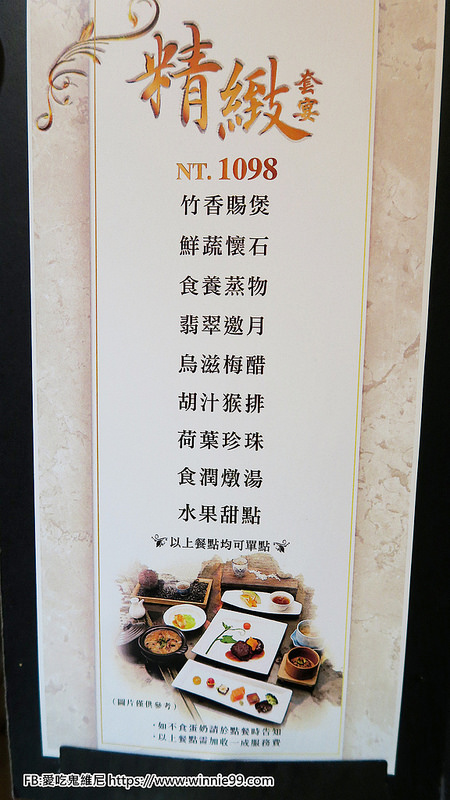 精緻套宴
NT. 1098
竹香賜煲
鮮蔬懷石
食養蒸物
翡翠邀月
烏滋梅醋
胡汁猴排
荷葉珍珠
食潤燉湯
水果甜點
以上餐點均可單點
(圖片僅供參考)
·如不食蛋奶請於點餐時告知
·以上餐點需加收一成服務費
FB:愛吃鬼維尼 https://www.winnie99.com/